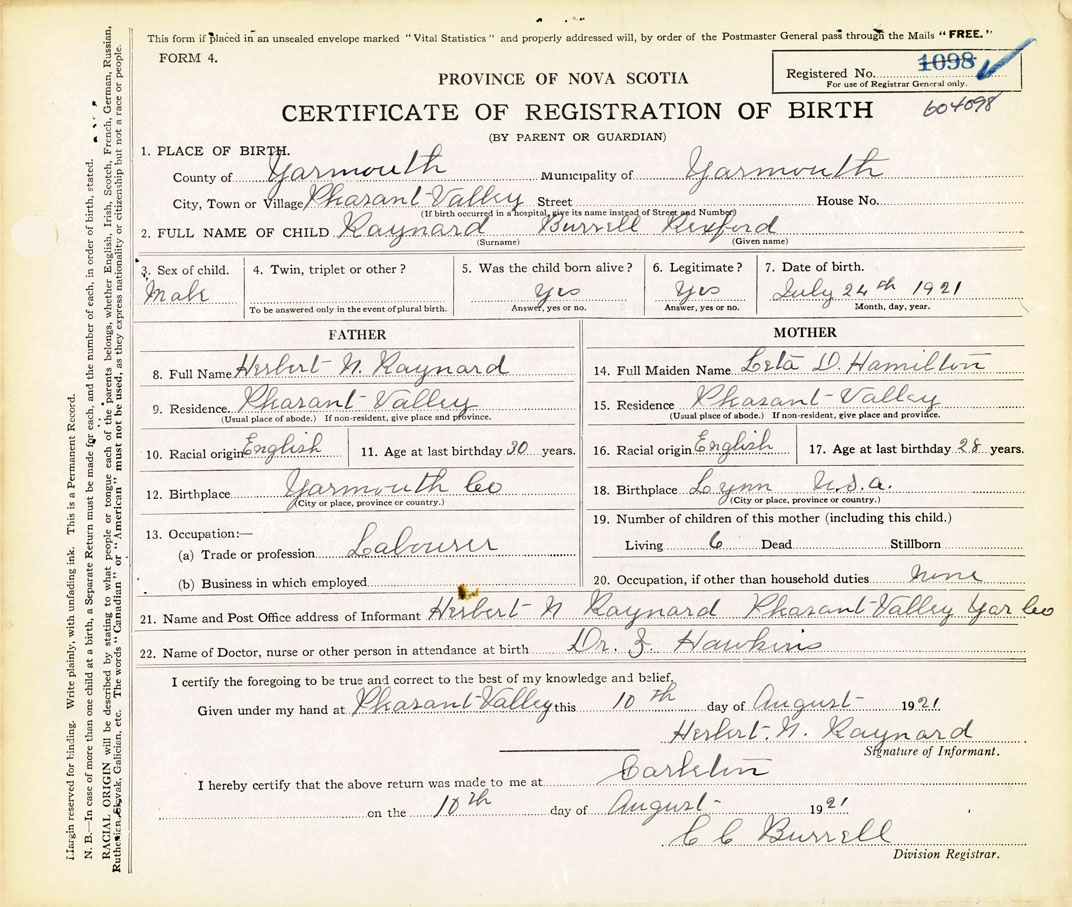 This form if placed in an unsealed envelope marked "Vital Statistics" and properly addressed will, by order of the Postmaster General pass through the Mails "FREE."
FORM 4.
Registered No. 1098
For use of Registrar General only.
604098
PROVINCE OF NOVA SCOTIA
CERTIFICATE OF REGISTRATION OF BIRTH
(BY PARENT OR GUARDIAN)
1. PLACE OF BIRTH.
County of Yarmouth Municipality of Yarmouth
City, Town or Village Pleasant Valley Street House No.
(If birth occurred in a hospital, give its name instead of Street and Number)
2. FULL NAME OF CHILD Raynard Burrell Rexford
(Surname) (Given name)
3. Sex of child. 4. Twin, triplet or other? 5. Was the child born alive? 6. Legitimate? 7. Date of birth.
Male Yes Yes July 24th 1921
To be answered only in the event of plural birth. Answer, yes or no. Answer, yes or no. Month, day, year.
FATHER
8. Full Name Herbert N. Raynard
9. Residence Pleasant Valley
(Usual place of abode.) If non-resident, give place and province.
10. Racial origin English 11. Age at last birthday 30 years.
12. Birthplace Yarmouth Co
(City or place, province or country.)
13. Occupation:—
(a) Trade or profession Labourer
(b) Business in which employed
MOTHER
14. Full Maiden Name Leta D. Hamilton
15. Residence Pleasant Valley
(Usual place of abode.) If non-resident, give place and province.
16. Racial origin English 17. Age at last birthday 28 years.
18. Birthplace Lynn U.S.a.
(City or place, province or country.)
19. Number of children of this mother (including this child.)
Living 6 Dead Stillborn
20. Occupation, if other than household duties none
21. Name and Post Office address of Informant Herbert N Raynard Pleasant Valley Yar Co
22. Name of Doctor, nurse or other person in attendance at birth Dr. Hawkins
I certify the foregoing to be true and correct to the best of my knowledge and belief,
Given under my hand at Pleasant Valley this 10th day of August 1921
Herbert. N. Raynard
Signature of Informant.
I hereby certify that the above return was made to me at Carleton
on the 10th day of August 1921
C C Burrell
Division Registrar.
Margin reserved for binding. Write plainly, with unfading ink. This is a Permanent Record.
N. B.—In case of more than one child at a birth, a Separate Return must be made for each, and the number of each, in order of birth, stated.
RACIAL ORIGIN will be described by stating to what people or tongue each of the parents belongs, whether English, Irish, Scotch, French, German, Russian,
Ruthenian, Slovak, Galician, etc. The words "Canadian" or "American" must not be used, as they express nationality or citizenship but not a race or people.